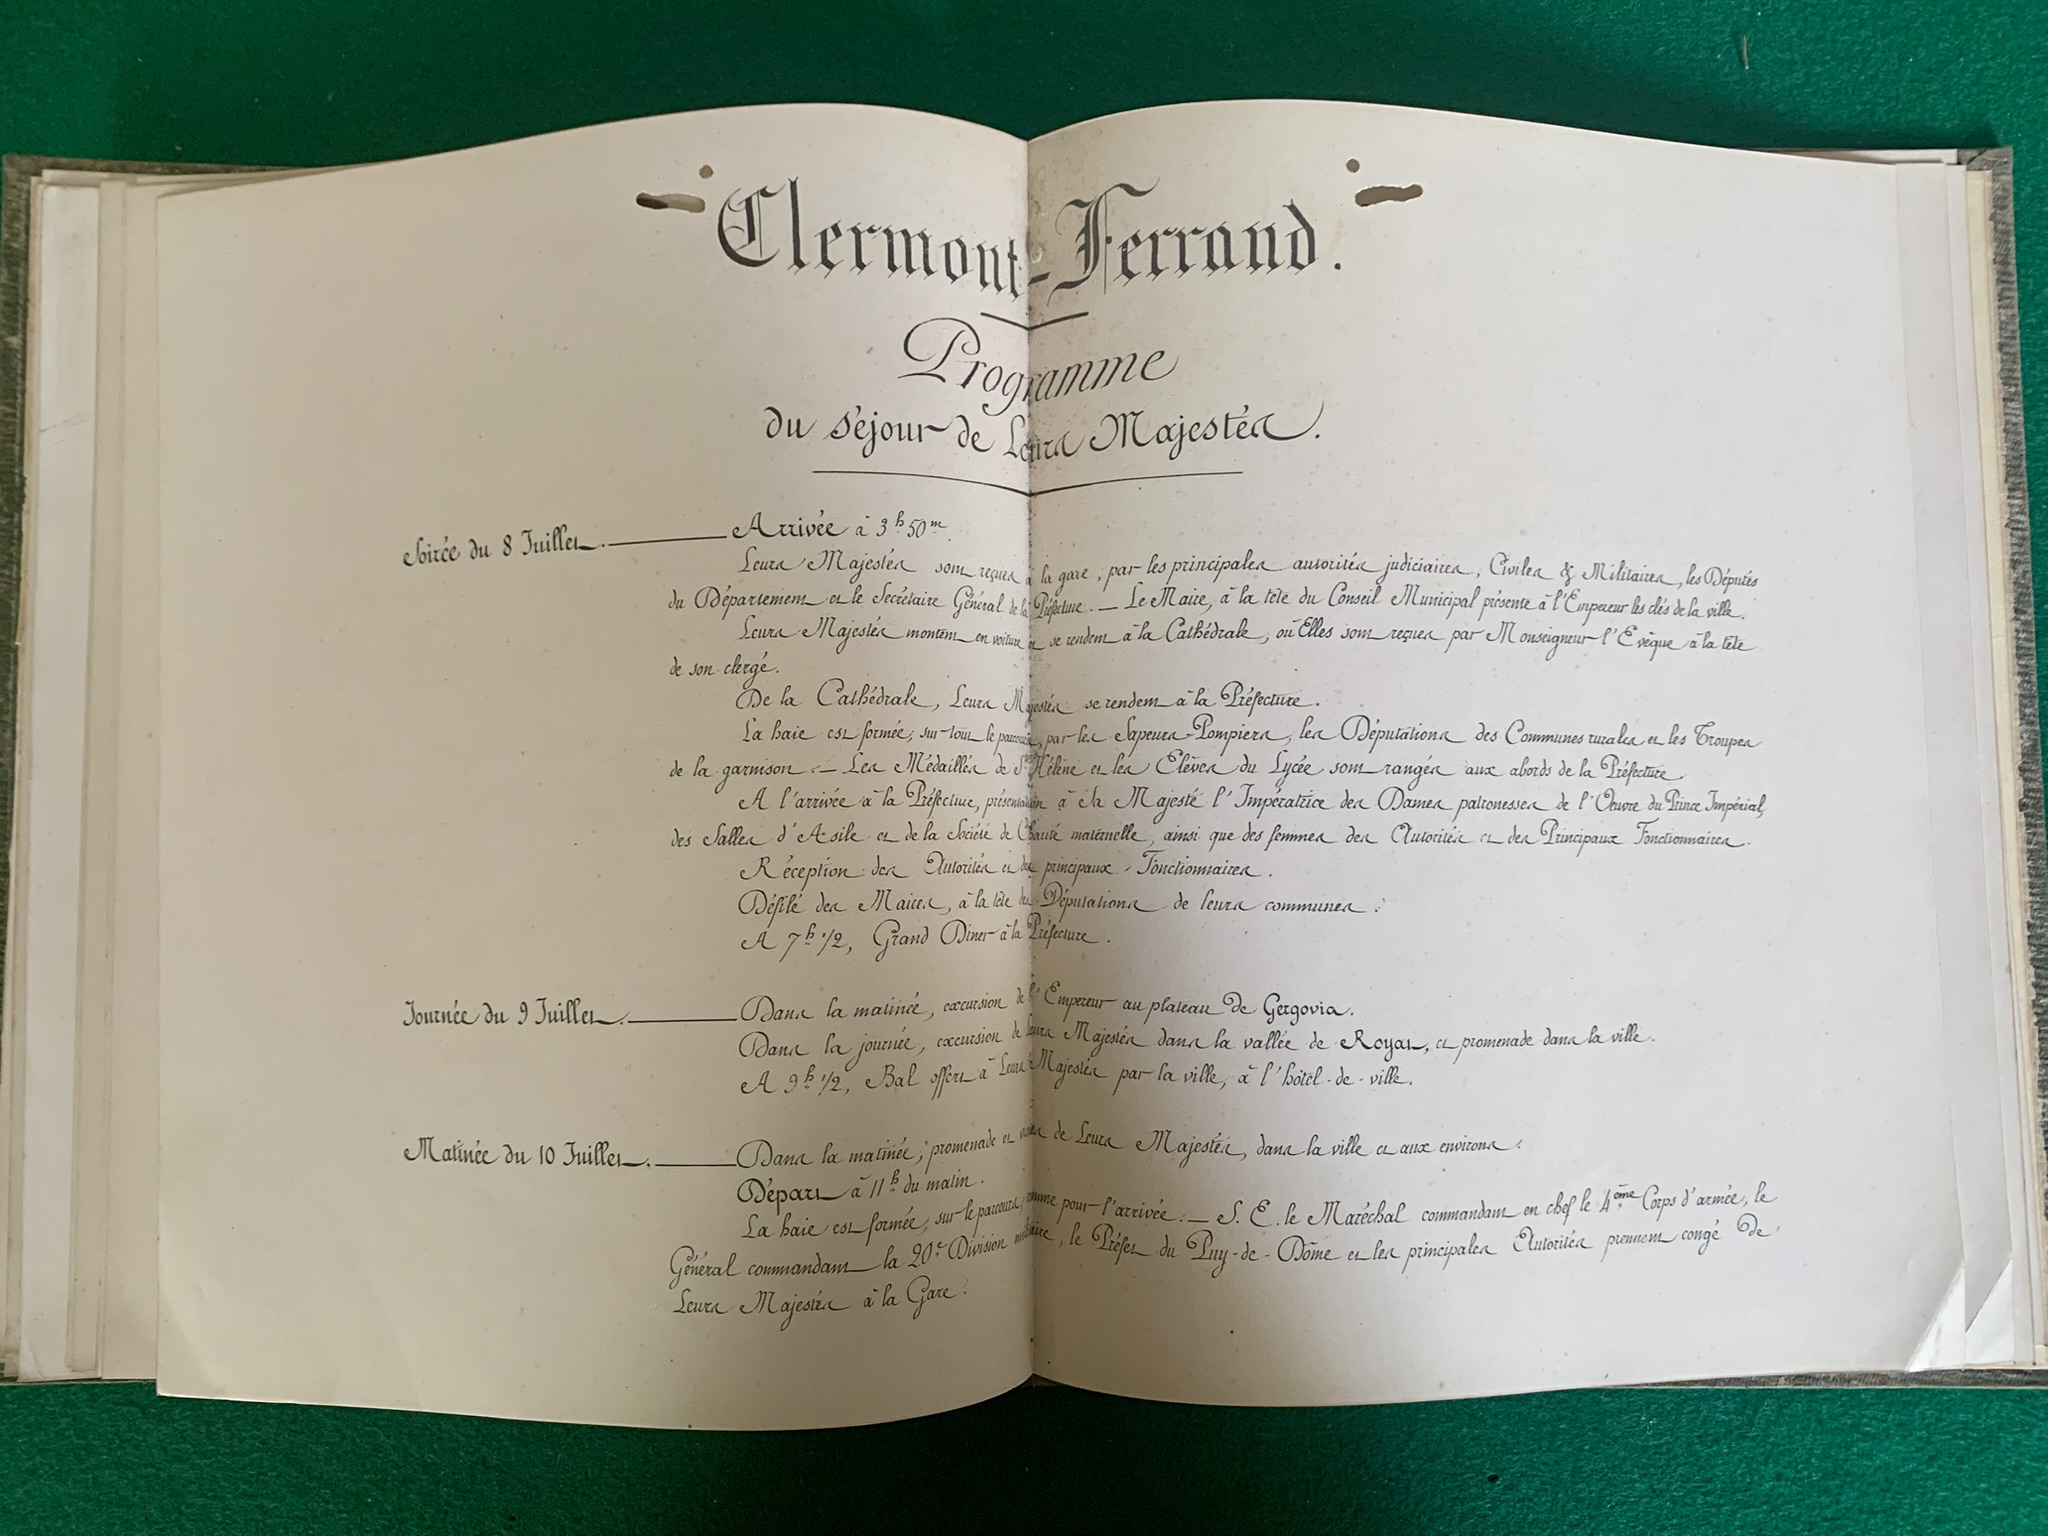 Clermont-Ferrand.
Programme
du séjour de Leurs Majestés.
Soirée du 8 Juillet. Arrivée à 3h 50m.
Leurs Majestés sont reçues à la gare, par les principales autorités judiciaires, Civiles & Militaires, les Députés
du Département et le Secrétaire Général de la Préfecture. — Le Maire, à la tête du Conseil Municipal présente à l'Empereur les clés de la ville.
Leurs Majestés montent en voiture et se rendent à la Cathédrale, où Elles sont reçues par Monseigneur l'Evêque à la tête
de son clergé.
De la Cathédrale, Leurs Majestés se rendent à la Préfecture.
La haie est formée, sur tout le parcours, par les Sapeurs-Pompiers, les Députations des Communes rurales et les Troupes
de la garnison. — Les Médaillés de Ste Hélène et les Elèves du Lycée sont rangés aux abords de la Préfecture
A l'arrivée à la Préfecture, présentation à Sa Majesté l'Impératrice des Dames patronesses de l'Œuvre du Prince Impérial,
des Salles d'Asile et de la Société de Charité maternelle, ainsi que des femmes des Autorités et des Principaux Fonctionnaires.
Réception des Autorités et des principaux Fonctionnaires.
Défilé des Maires, à la tête des Députations de leurs communes.
A 7h 1/2, Grand Diner à la Préfecture.
Journée du 9 Juillet. Dans la matinée, excursion de l'Empereur au plateau de Gergovia.
Dans la journée, excursion de Leurs Majestés dans la vallée de Royat, et promenade dans la ville.
A 9h 1/2, Bal offert à Leurs Majestés par la ville, à l'hôtel-de-ville.
Matinée du 10 Juillet. Dans la matinée, promenade et visites de Leurs Majestés, dans la ville et aux environs.
Départ à 11h du matin.
La haie est formée, sur le parcours, comme pour l'arrivée. — S. E. le Maréchal commandant en chef le 4ème Corps d'armée, le
Général commandant la 20e Division militaire, le Préfet du Puy-de-Dôme et les principales Autorités prennent congé de
Leurs Majestés à la Gare.